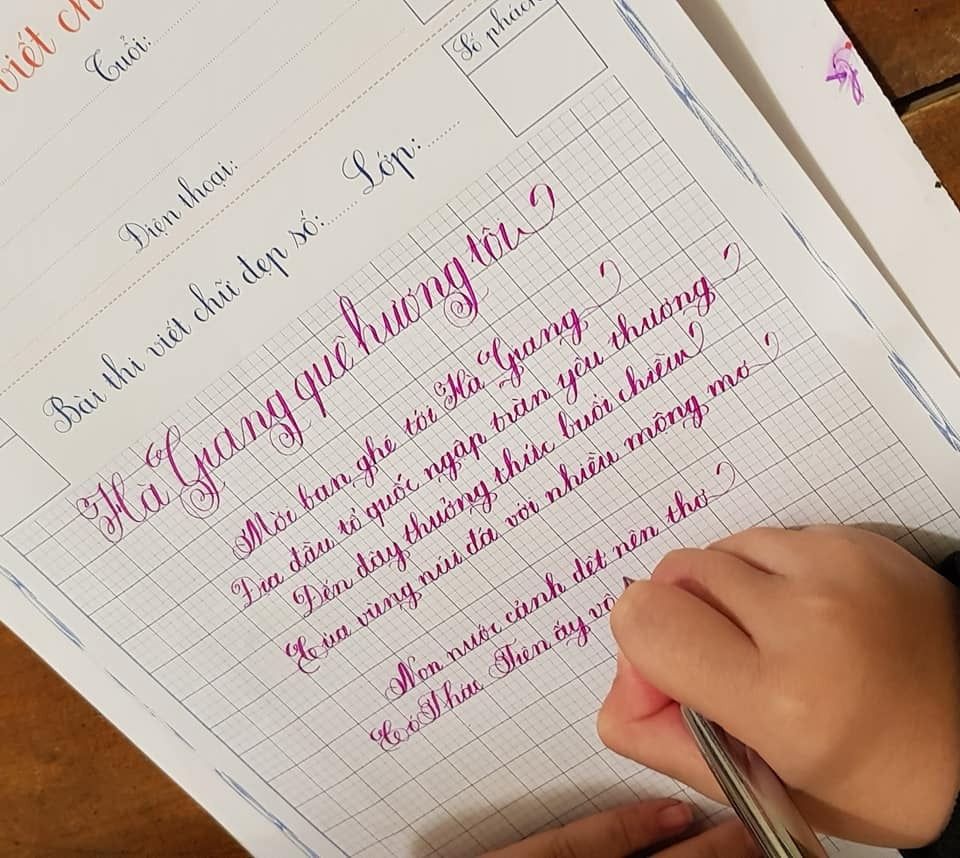 viết ch
Tuổi:
Số phách
Điện thoại:
Bài thi viết chữ đẹp số:...... Lớp:.........
Hà Giang quê hương tôi
Mời bạn ghé tới Hà Giang
Địa đầu tổ quốc ngập tràn yêu thương
Đến đây thưởng thức buổi chiều
Của vùng núi đá với nhiều mộng mơ
Non nước cảnh dệt nên thơ
Có Thác Tiên ấy vô